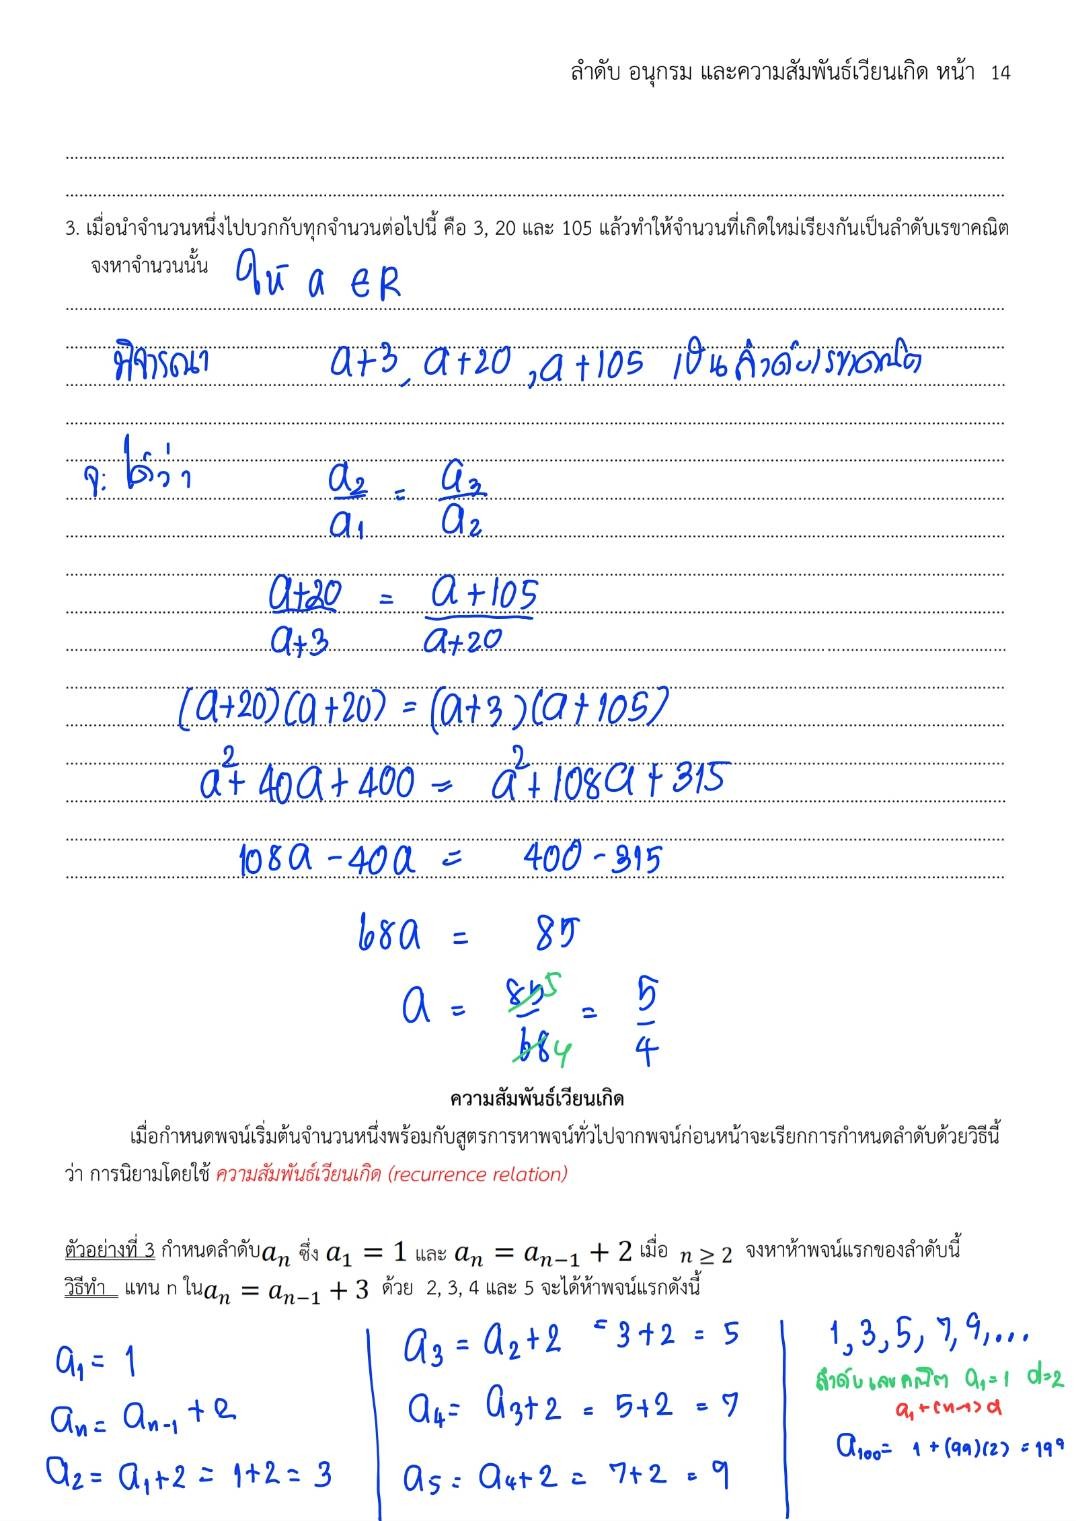 ลำดับ อนุกรม และความสัมพันธ์เวียนเกิด หน้า 14
3. เมื่อนำจำนวนหนึ่งไปบวกกับทุกจำนวนต่อไปนี้ คือ 3, 20 และ 105 แล้วทำให้จำนวนที่เกิดใหม่เรียงกันเป็นลำดับเรขาคณิต
จงหาจำนวนนั้น ให้ a ∈ R
พิจารณา a+3, a+20, a+105 เป็นลำดับเรขาคณิต
จะได้ว่า a₂/a₁ = a₃/a₂
(a+20)/(a+3) = (a+105)/(a+20)
(a+20)(a+20) = (a+3)(a+105)
a²+40a+400 = a²+108a+315
108a-40a = 400-315
68a = 85
a = 85/68 5 4 = 5/4
ความสัมพันธ์เวียนเกิด
เมื่อกำหนดพจน์เริ่มต้นจำนวนหนึ่งพร้อมกับสูตรการหาพจน์ทั่วไปจากพจน์ก่อนหน้าจะเรียกการกำหนดลำดับด้วยวิธีนี้
ว่า การนิยามโดยใช้ ความสัมพันธ์เวียนเกิด (recurrence relation)
ตัวอย่างที่ 3 กำหนดลำดับ aₙ ซึ่ง a₁ = 1 และ aₙ = aₙ₋₁ + 2 เมื่อ n ≥ 2 จงหาห้าพจน์แรกของลำดับนี้
วิธีทำ แทน n ใน aₙ = aₙ₋₁ + 3 ด้วย 2, 3, 4 และ 5 จะได้ห้าพจน์แรกดังนี้
a₁ = 1
aₙ = aₙ₋₁ + 2
a₂ = a₁+2 = 1+2 = 3
a₃ = a₂+2 = 3+2 = 5
a₄ = a₃+2 = 5+2 = 7
a₅ = a₄+2 = 7+2 = 9
1, 3, 5, 7, 9, ...
ลำดับเลขคณิต a₁=1 d=2
a₁+(n-1)d
a₁₀₀ = 1+(99)(2) = 199